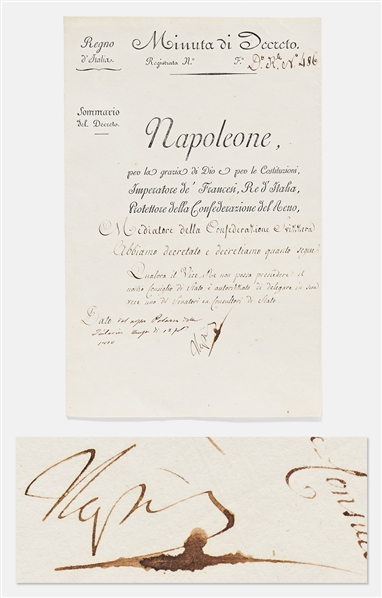 Regno
d'Italia.
Minuta di Decreto.
Registrata N.º F.º D.º R.le N.º 486
Sommario
del Decreto.
Napoleone,
per la grazia di Dio e per le Costituzioni,
Imperatore de' Francesi, Re d'Italia,
Protettore della Confederazione del Reno,
Mediatore della Confederazione Svizzera
Abbiamo decretato e decretiamo quanto segue:
Qualora il Vice Re non possa presiedere il
nostro Consiglio di Stato è autorizzato di delegare in sua
vece uno di Senatori Consultori di Stato
Dato dal Palazzo delle
Tuileries
1810
Nap
Nap